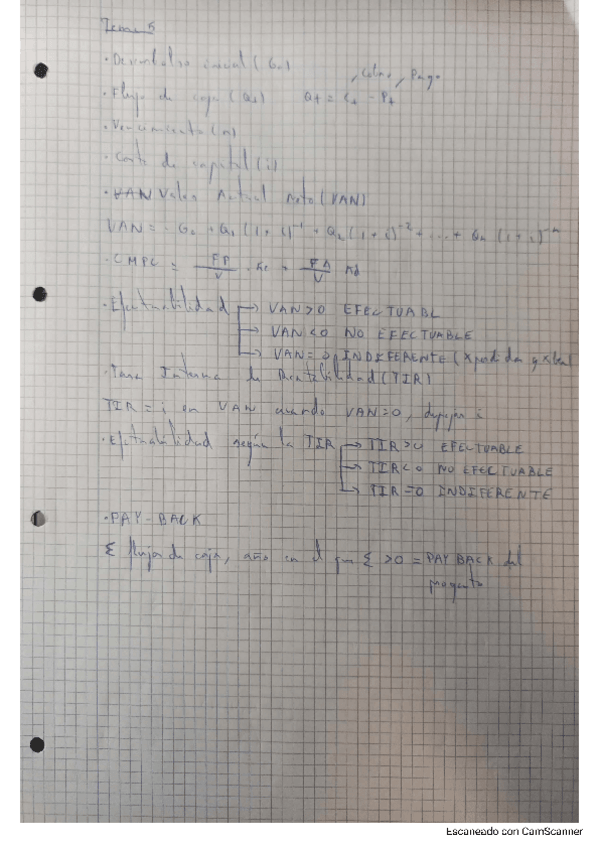 Tema 5
· Desembolso inicial (G₀)
, Cobros , Pagos
· Flujo de caja (Qt) Qt = Ct - Pt
· Vencimiento (n)
· Coste de capital (i)
· VAN Valor Actual Neto (VAN)
VAN = - G₀ + Q₁ (1 + i)⁻¹ + Q₂ (1 + i)⁻² + ... + Qn (1 + i)⁻ⁿ
· CMPC = FP/V · Ke + FA/V Kd
· Efectuabilidad → VAN>0 EFECTUABL
→ VAN<0 NO EFECTUABLE
→ VAN=0 INDIFERENTE (
· Tasa Interna de Rentabilidad (TIR)
TIR = i en VAN cuando VAN=0, despejar i
· Efectuabilidad según la TIR → TIR>0 EFECTUABLE
→ TIR<0 NO EFECTUABLE
→ TIR=0 INDIFERENTE
· PAY-BACK
Σ flujos de caja, año en el que Σ >0 = PAYBACK del
proyecto
Escaneado con CamScanner